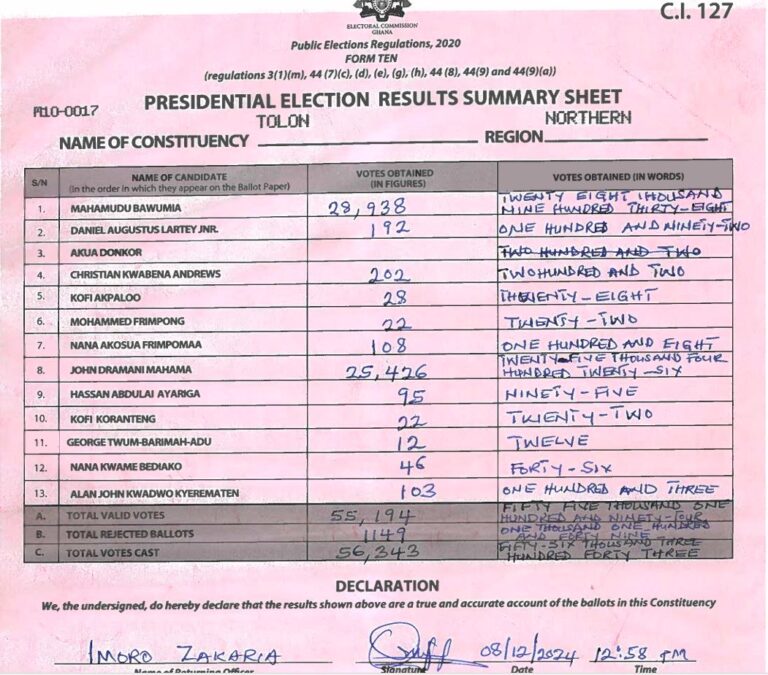 C.I. 127
ELECTORAL COMMISSION
GHANA
Public Elections Regulations, 2020
FORM TEN
(regulations 3(1)(m), 44 (7)(c), (d), (e), (g), (h), 44 (8), 44(9) and 44(9)(a))
M10-0017
PRESIDENTIAL ELECTION RESULTS SUMMARY SHEET
NAME OF CONSTITUENCY TOLON REGION NORTHERN
S/N NAME OF CANDIDATE (In the order in which they appear on the Ballot Paper) VOTES OBTAINED (IN FIGURES) VOTES OBTAINED (IN WORDS)
1. MAHAMUDU BAWUMIA 28,938 TWENTY EIGHT THOUSAND NINE HUNDRED THIRTY-EIGHT
2. DANIEL AUGUSTUS LARTEY JNR. 192 ONE HUNDRED AND NINETY-TWO
3. AKUA DONKOR TWO HUNDRED AND TWO
4. CHRISTIAN KWABENA ANDREWS 202 TWO HUNDRED AND TWO
5. KOFI AKPALOO 28 TWENTY-EIGHT
6. MOHAMMED FRIMPONG 22 TWENTY-TWO
7. NANA AKOSUA FRIMPOMAA 108 ONE HUNDRED AND EIGHT
8. JOHN DRAMANI MAHAMA 25,426 TWENTY-FIVE THOUSAND FOUR HUNDRED TWENTY-SIX
9. HASSAN ABDULAI AYARIGA 95 NINETY-FIVE
10. KOFI KORANTENG 22 TWENTY-TWO
11. GEORGE TWUM-BARIMAH-ADU 12 TWELVE
12. NANA KWAME BEDIAKO 46 FORTY-SIX
13. ALAN JOHN KWADWO KYEREMATEN 103 ONE HUNDRED AND THREE
A. TOTAL VALID VOTES 55,194 FIFTY FIVE THOUSAND ONE HUNDRED AND NINETY-FOUR
B. TOTAL REJECTED BALLOTS 1149 ONE THOUSAND ONE HUNDRED AND FORTY NINE
C. TOTAL VOTES CAST 56,343 FIFTY-SIX THOUSAND THREE HUNDRED FORTY THREE
DECLARATION
We, the undersigned, do hereby declare that the results shown above are a true and accurate account of the ballots in this Constituency
IMORO ZAKARIA 08/12/2024 12:58 PM
Name of Returning Officer Signature Date Time